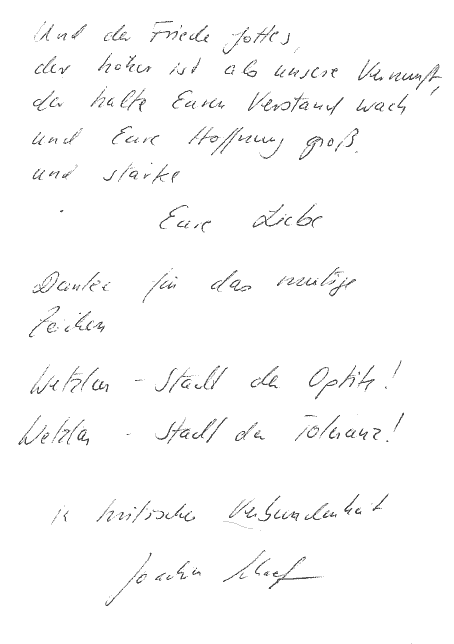 Und der Friede Gottes,
der höher ist als unsere Vernunft,
der halte Euren Verstand wach
und Eure Hoffnung groß
und stärke
Eure Liebe
Danke für das mutige
Zeichen
Wetzlar - Stadt der Optik!
Wetzlar - Stadt der Toleranz!
in kritischer Verbundenheit
Joachim